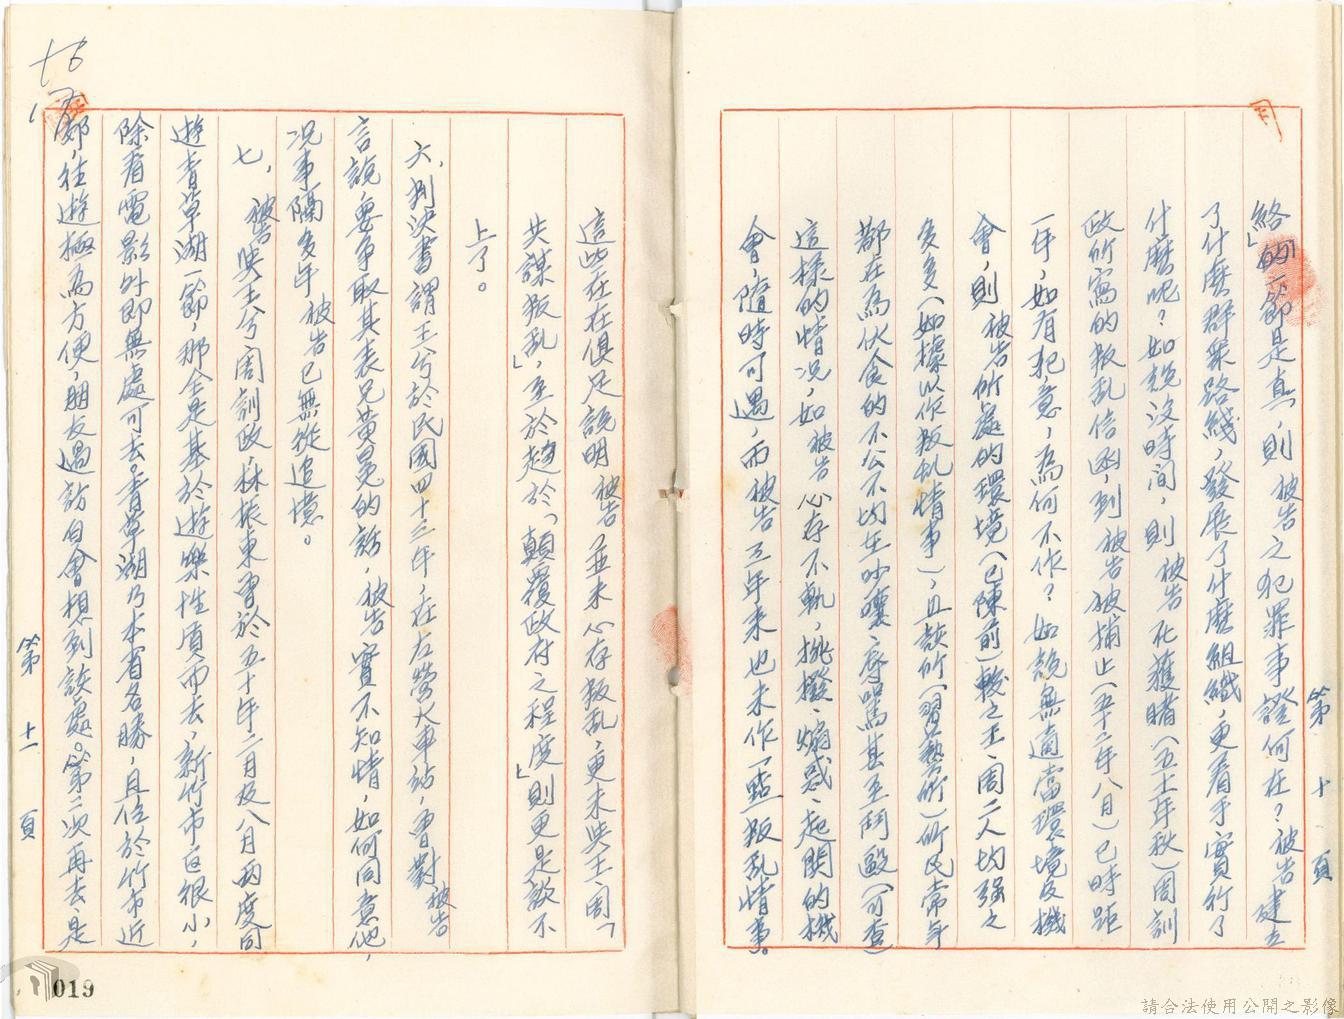 絡」的一節是真，則被告之犯罪事證何在？被告建立
了什麼群眾路綫，發展了什麼組織，更着手實行了
什麼呢？如說沒時间，則被告於獲睹（五十年秋）周訓
政所寫的叛乱信函，到被告被捕止（五十二年八月）已時距
一年，如有犯意，為何不作？如說無適當環境及機
會，則被告所處的環境（已陳前）較之王、周二人均强之
多多（如據以作叛乱情事），且該所（習藝所）所民常年
都在為伙食的不公不均在吵嚷、辱罵甚至鬥毆（可查）
這樣的情況，如被告心存不軌，挑撥、煽惑、起鬨的機
會，隨時可遇，而被告三年来也未作一點叛乱情事。
第十頁
這些在在俱足說明被告並未心存叛乱，更未與王、周「
共謀叛乱」，至於趨於「顛覆政府之程度」則更是談不
上了。
六、判決書謂王兮於民國四十三年，在左營火車站，曾對被告
言說要爭取其表兄黃晃的話，被告實不知情，如何同意他，
況事隔多年被告已無從追憶。
七、被告與王兮、周訓政、林振東曾於五十年二月及八月兩度同
遊青草湖一節，那全是基於遊樂性質而去，新竹市区很小，
除看電影外即無處可去。青草湖乃本省名勝，且位於竹市近
郊，往遊極為方便，朋友過訪自會想到該處。第二次再去，是
第十一頁
019
請合法使用公開之影像